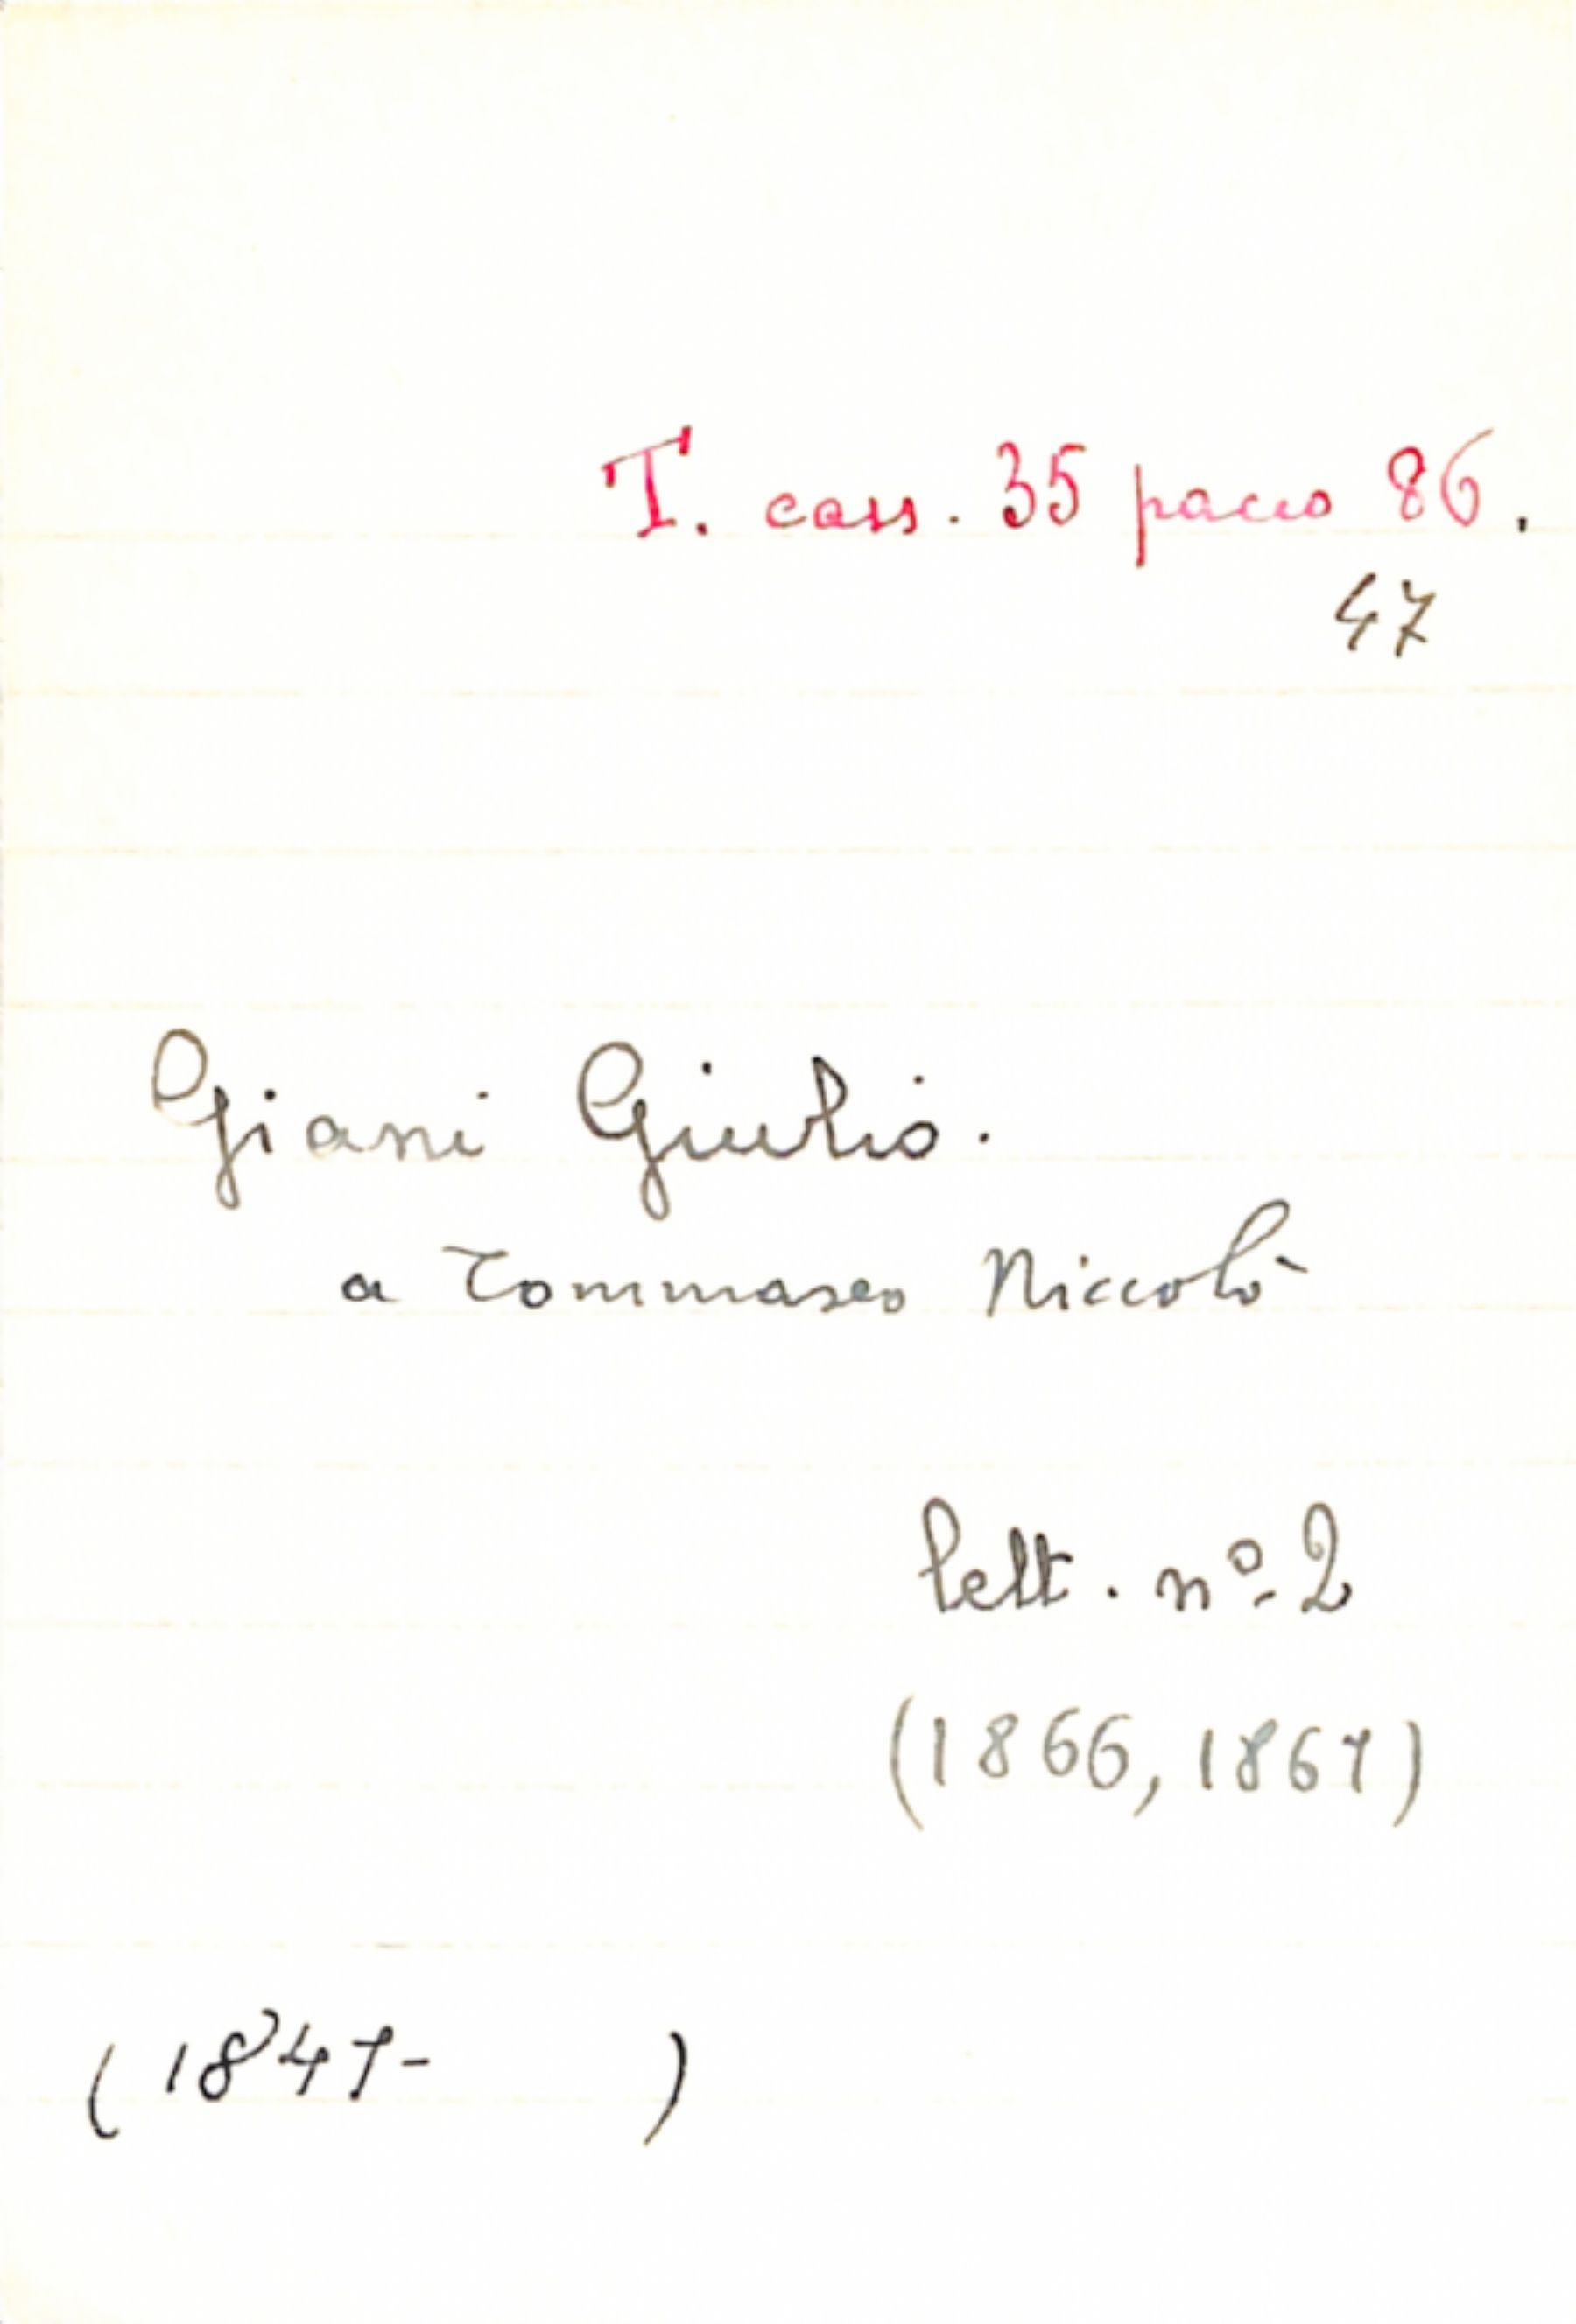 T. cass. 35 pacco 86.
47
Giani Giulio.
a Tommaseo Niccolò
lett. nº 2
(1866, 1867)
(1847- )